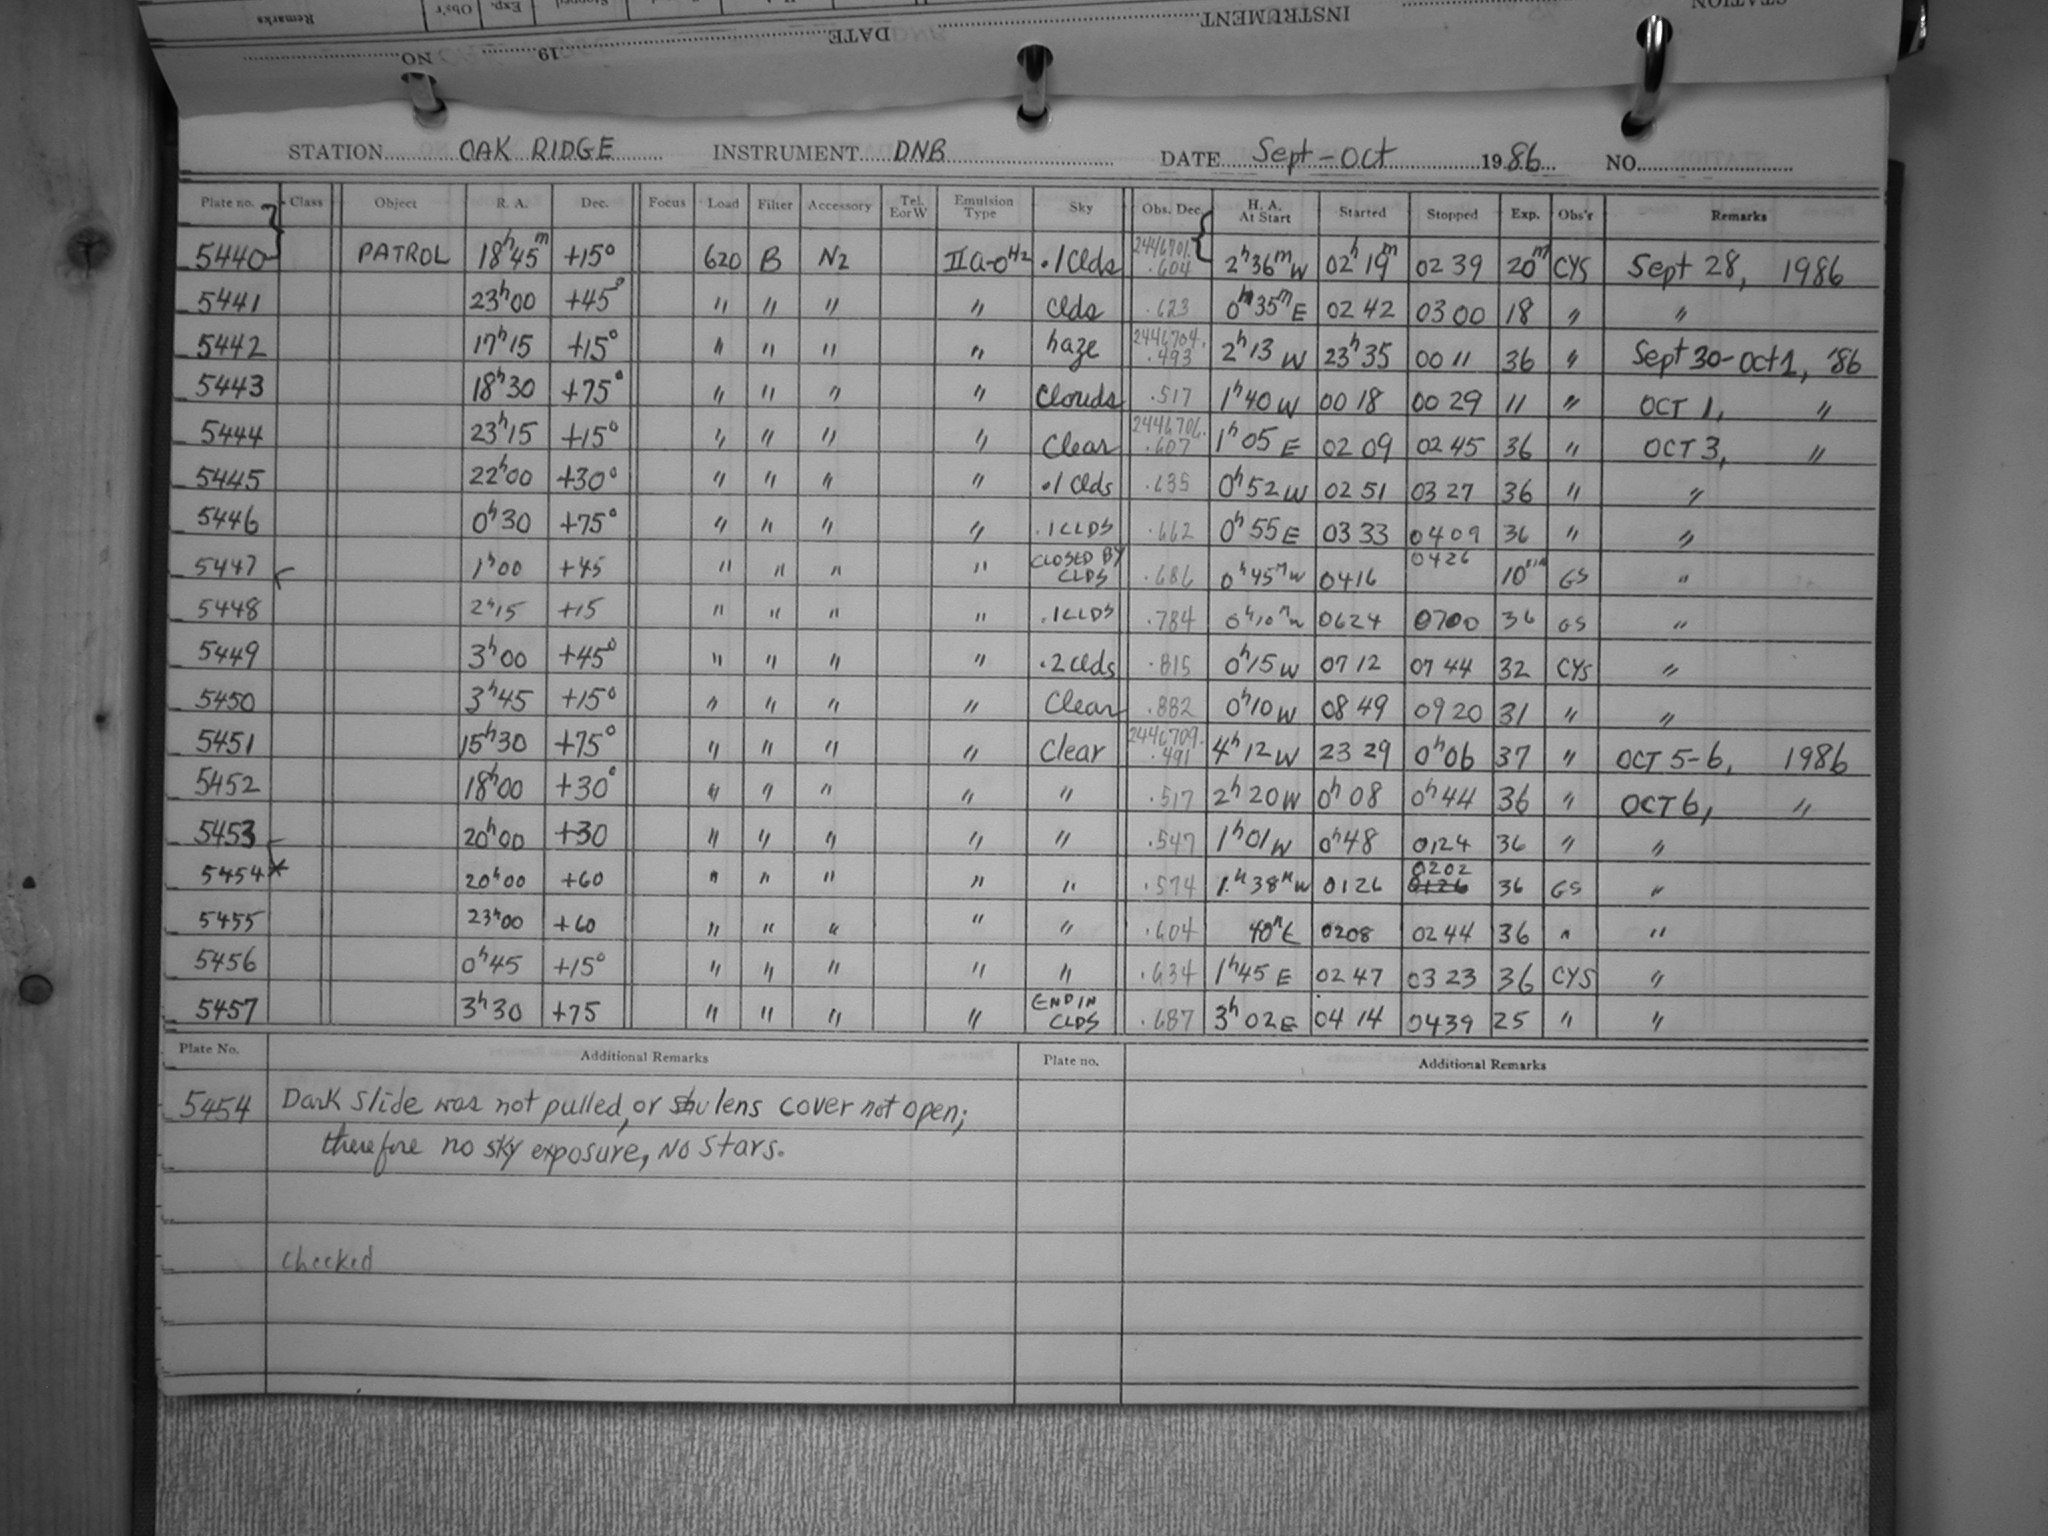 Remarks Obs'r Exp. Stopped
STATION INSTRUMENT DATE 19 NO.
STATION OAK RIDGE INSTRUMENT DNB DATE Sept-Oct 1986 NO.
Plate no. Class Object R. A. Dec. Focus Load Filter Accessory Tel. E or W Emulsion Type Sky Obs. Dec. H. A. At Start Started Stopped Exp. Obs'r Remarks
5440 PATROL 18h45m +15° 620 B N2 IIa-O H2 .1 Clds 2446701.604 2h36mW 02h19m 02 39 20m CYS Sept 28, 1986
5441 23h00 +45° " " " " Clds .623 0h35mE 02 42 03 00 18 " "
5442 17h15 +15° " " " " haze 2446704.493 2h13 W 23h35 00 11 36 " Sept 30-Oct 1, '86
5443 18h30 +75° " " " " Clouds .517 1h40 W 00 18 00 29 11 " OCT 1, "
5444 23h15 +15° " " " " Clear 2446706.607 1h05 E 02 09 02 45 36 " OCT 3, "
5445 22h00 +30° " " " " .1 Clds .635 0h52 W 02 51 03 27 36 " "
5446 0h30 +75° " " " " .1 CLDS .662 0h55 E 03 33 0409 36 " "
5447 1h00 +45 " " " " CLOSED BY CLDS .686 0h45mW 0416 0426 10min GS "
5448 2h15 +15 " " " " .1 CLDS .784 0h10mW 0624 0700 36 GS "
5449 3h00 +45° " " " " .2 Clds .815 0h15 W 07 12 07 44 32 CYS "
5450 3h45 +15° " " " " Clear .882 0h10 W 08 49 09 20 31 " "
5451 15h30 +75° " " " " Clear 2446709.491 4h12 W 23 29 0h06 37 " OCT 5-6, 1986
5452 18h00 +30° " " " " " .517 2h20 W 0h08 0h44 36 " OCT 6, "
5453 20h00 +30 " " " " " .547 1h01 W 0h48 0124 36 " "
5454* 20h00 +60 " " " " " .574 1h38mW 0126 0202 0126 36 GS "
5455 23h00 +60 " " " " " .604 40mE 0208 02 44 36 " "
5456 0h45 +15° " " " " " .634 1h45 E 02 47 03 23 36 CYS "
5457 3h30 +75 " " " " END IN CLDS .687 3h02 E 04 14 0439 25 " "
Plate No. Additional Remarks Plate no. Additional Remarks
5454 Dark slide was not pulled, or lens cover not open;
therefore no sky exposure, No stars.
checked